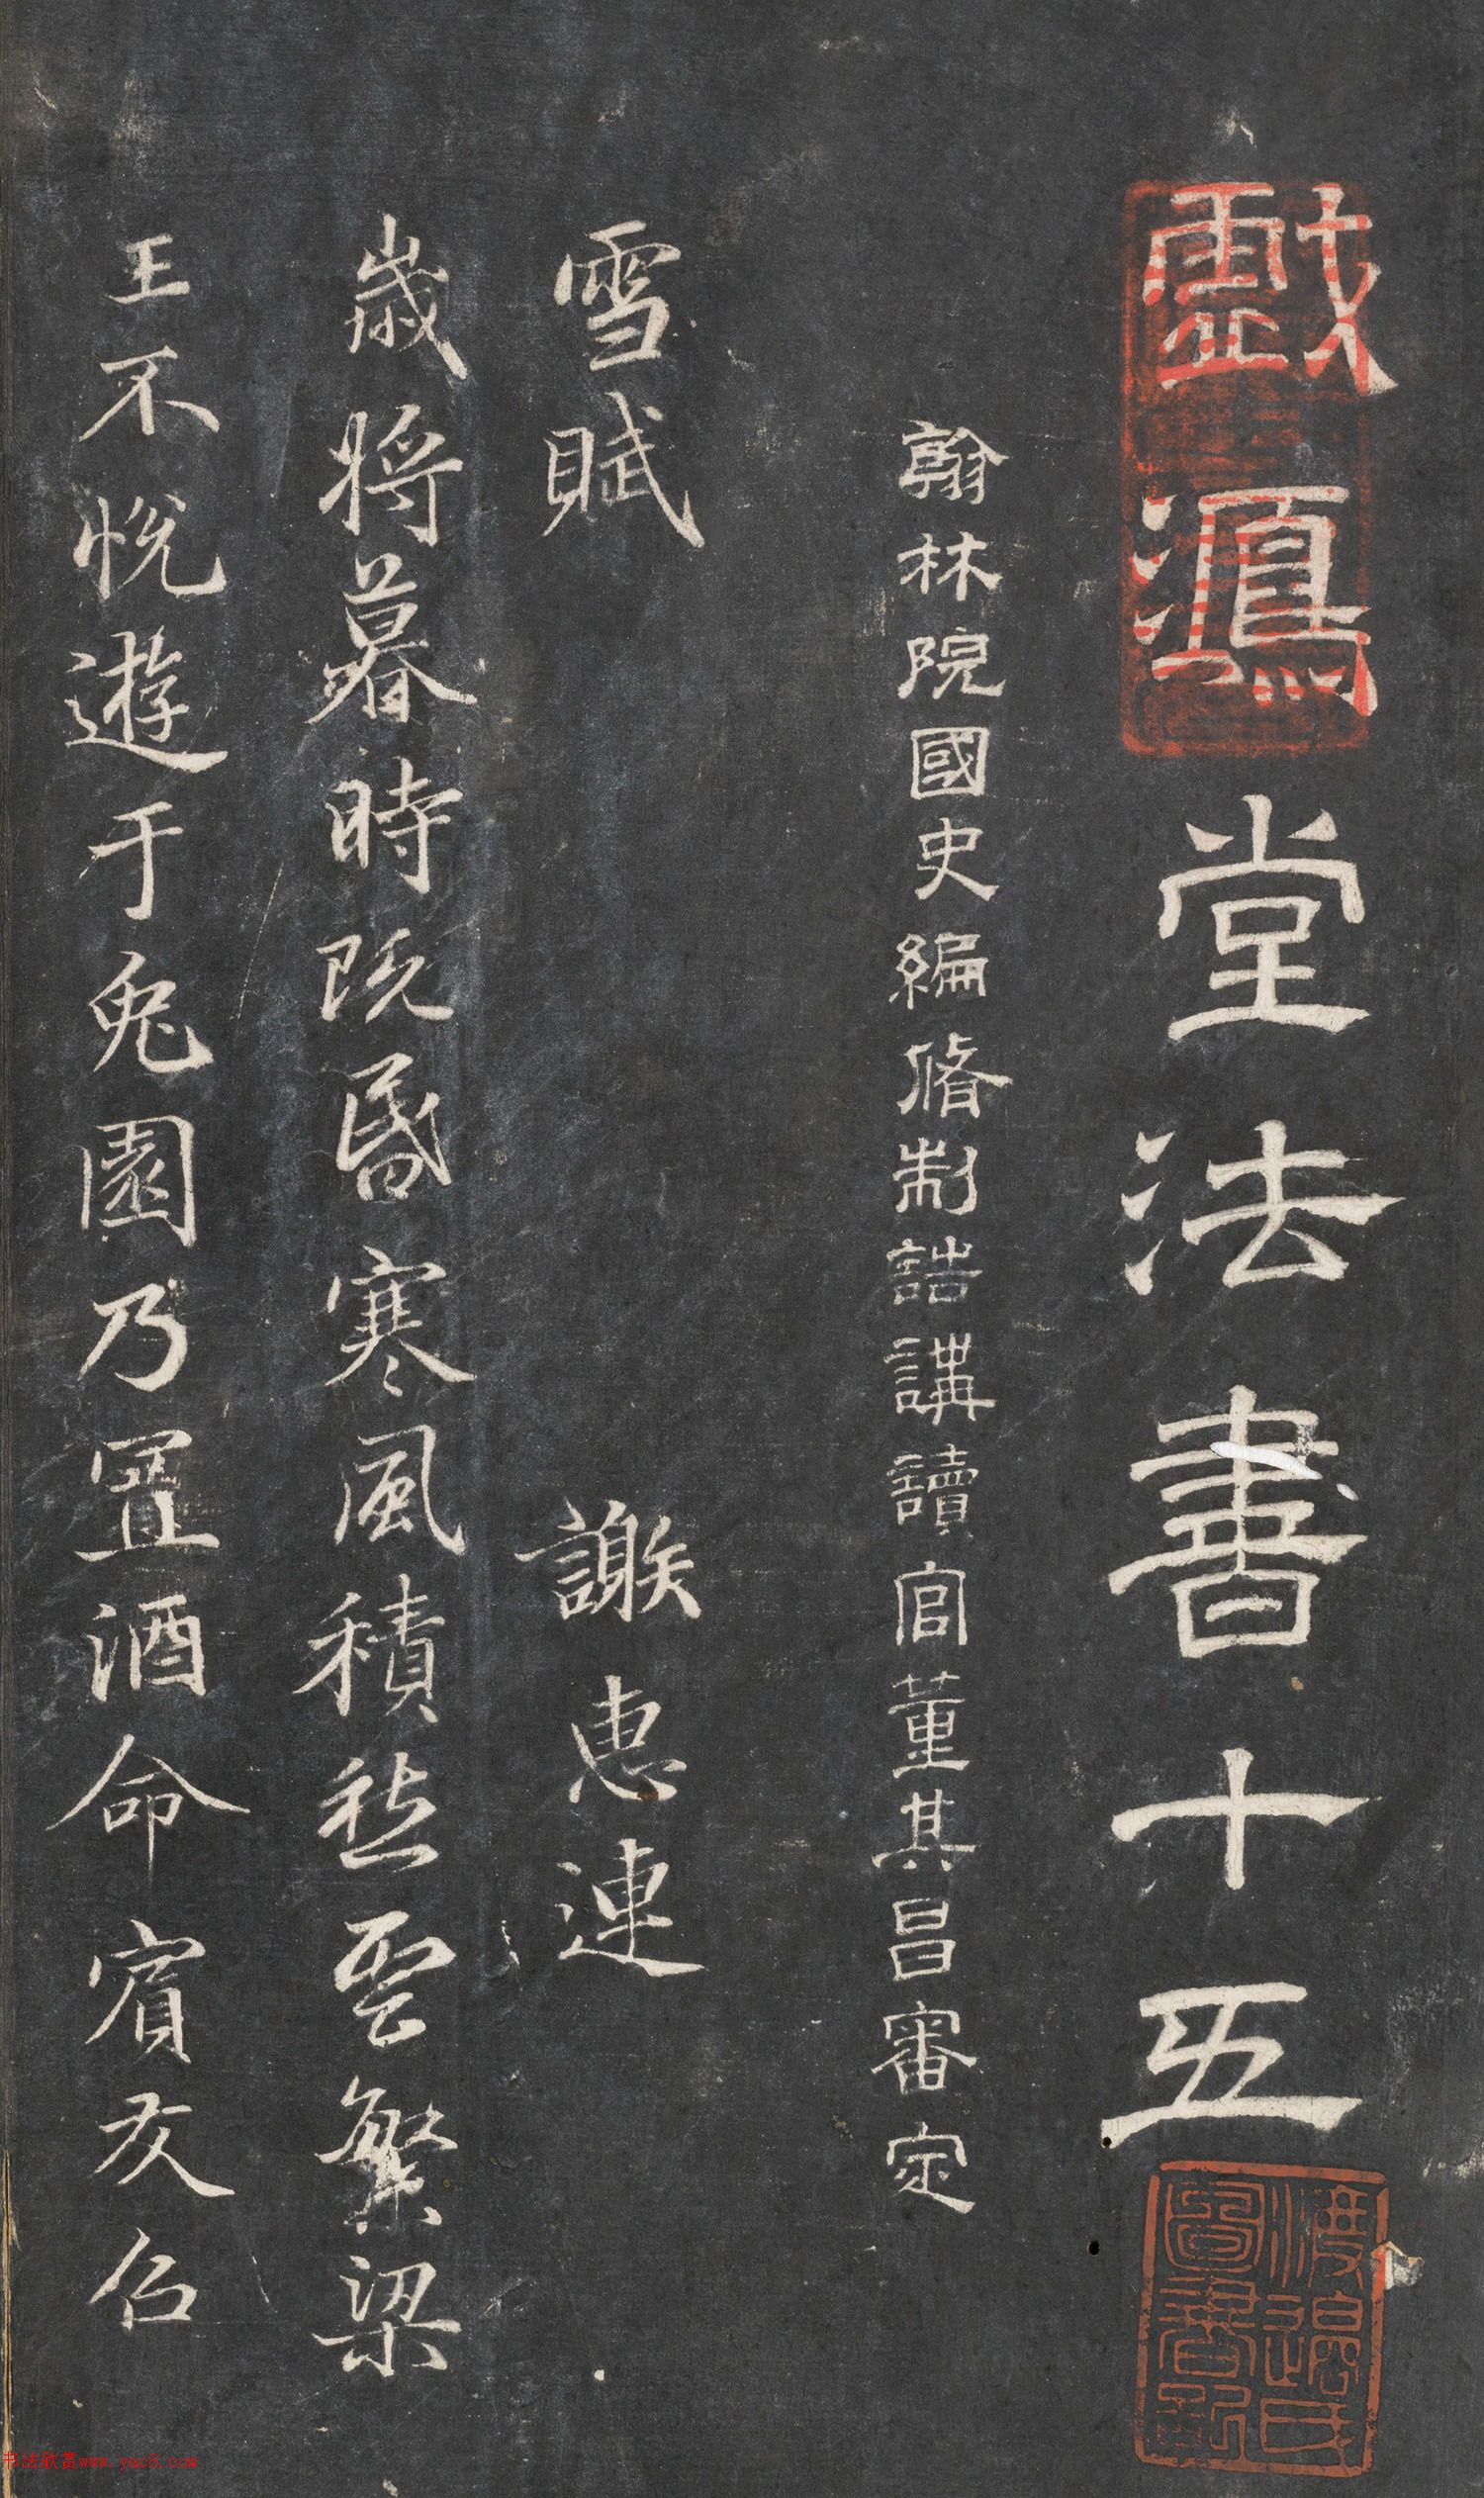 戲鴻堂法書十五
翰林院國史編脩制誥講讀官董其昌審定
雪賦 謝惠連
歲將暮時既昏寒風積愁雲繁梁
王不悅遊于兔園乃置酒命賓友召
书法欣赏www.yac8.com